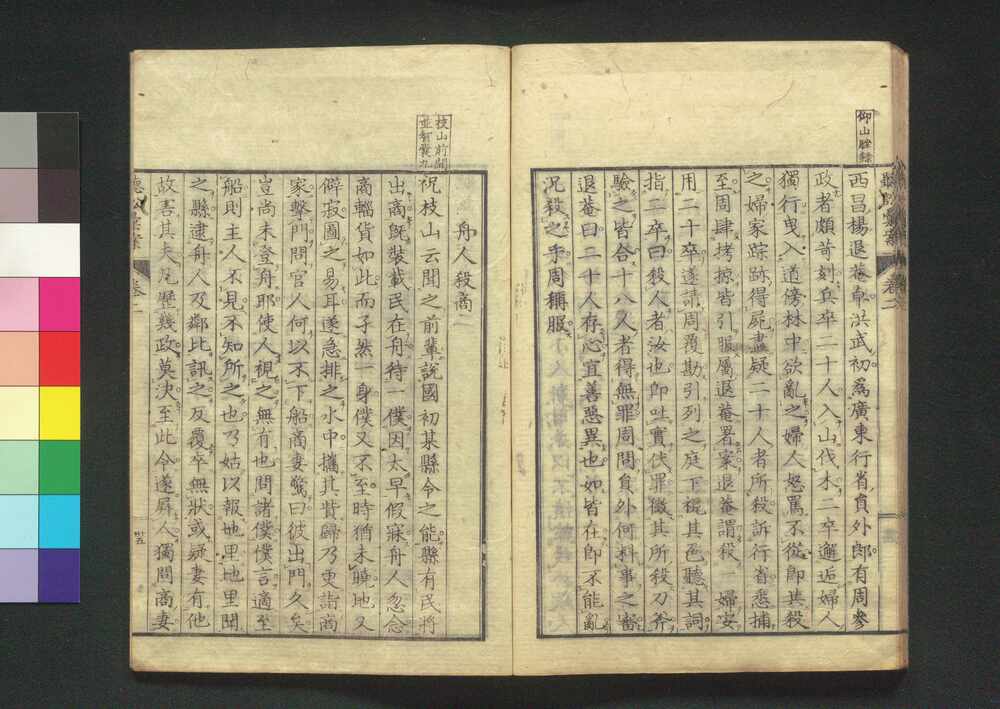 仰山脞錄
西昌楊退菴卓洪武初爲廣東行省員外郎有周參
政者頗苛刻兵卒二十人入山伐木二卒邂逅婦人
獨行曳入道傍林中欲亂之婦人怒罵不從卽共殺
之婦家踪跡得屍盡疑二十人者所殺訴行省悉捕
至周肆拷掠皆引服屬退菴署案退菴謂殺一婦安
用二十卒遂請周覆勘引列之庭下視其色聽其詞
指二卒曰殺人者汝也卽吐實伏罪徵其所殺刀斧
驗之皆合十八人者得無罪周問員外何料事之審
退菴曰二十人存心宜善惡異也如皆在卽不能亂
况殺之乎周稱服
枝山前聞
並智囊九
舟人殺商
祝枝山云聞之前輩說國初某縣令之能縣有民將
出商旣裝載民在舟待一僕因太早假寐舟人忽念
商輜貨如此而孑然一身僕又不至時猶未曉地又
僻寂圖之易耳遂急排之水中攜其貲歸乃更詣商
家擊門問官人何以不下船商妻驚曰彼出門久矣
豈尚未登舟耶使人視之無有也問諸僕僕言適至
船則主人不見不知所之也乃姑以報地里地里聞
之縣逮舟人及鄰比訊之反覆卒無狀或疑妻有他
故害其夫凡歷幾政莫決至此令遂屏人獨問商妻
聽訟彙案 卷二